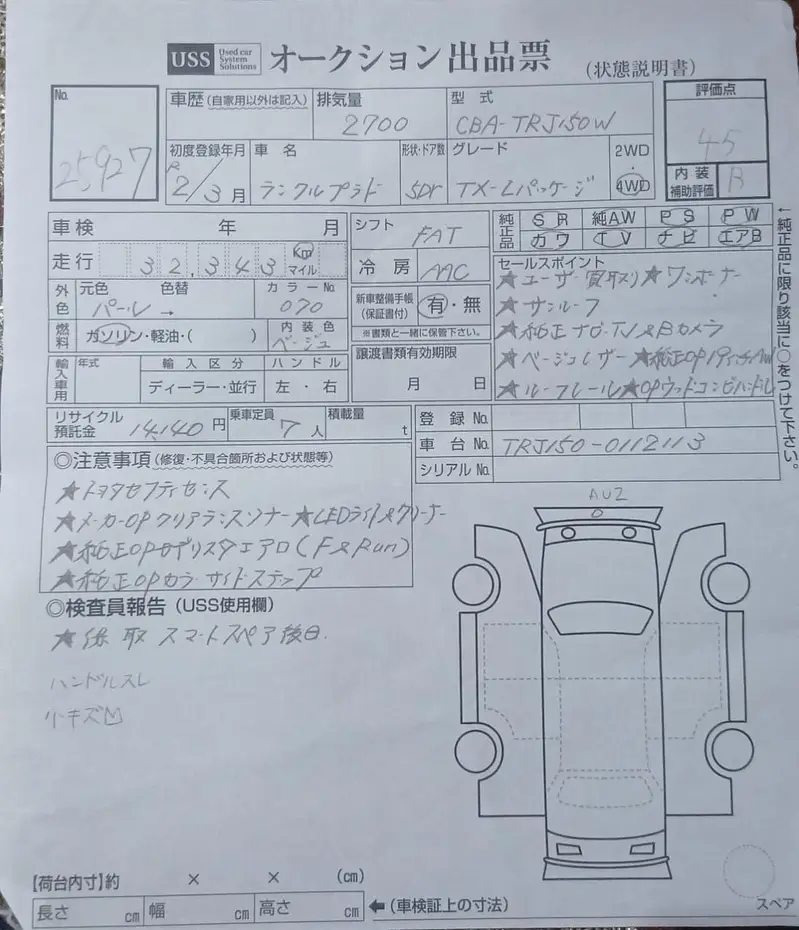 USS Used car System Solutions オークション出品票 (状態説明書)
No. 25927
車歴 (自家用以外は記入)
排気量 2700
型式 CBA-TRJ150W
評価点 45
内装補助評価 B
初度登録年月 R2/3月
車名 ランクルプラド
形状・ドア数 5Dr
グレード TX-Lパッケージ
2WD・4WD
車検 年 月
走行 32,343 Km マイル
シフト FAT
冷房 AAC
純正品 SR 純AW PS PW
カワ TV ナビ エアB
外色 元色 色替 カラーNo.
パール → 070
燃料 ガソリン・軽油・( )
内装色 ベージュ
新車整備手帳(保証書付) 有・無
※書類と一緒に保管下さい。
セールスポイント
★ユーザー買取り★ワンオーナー
★サンルーフ
★純正ナビ・TV&Bカメラ
★ベージュレザー★純正OP
★ルーフレール★OPウッドコンビハンドル
←純正品に限り該当に○をつけて下さい。
輸入車用 年式 輸入区分 ハンドル
ディーラー・並行 左・右
譲渡書類有効期限
月 日
リサイクル預託金 14,140円
乗車定員 7人
積載量 t
登録No.
車台No. TRJ150-0112113
シリアルNo.
◎注意事項(修復・不具合箇所および状態等)
★トヨタセフティセンス
★メーカーOPクリアランスソナー★LEDライト&クリーナー
★純正OPモデリスタエアロ(F&Run)
★純正OPカラーサイドステップ
◎検査員報告(USS使用欄)
★保 取 スマートスペア後日.
ハンドルスレ
小キズ
AU2
【荷台内寸】約 × × (cm)
長さ cm 幅 cm 高さ cm ←(車検証上の寸法)
スペア